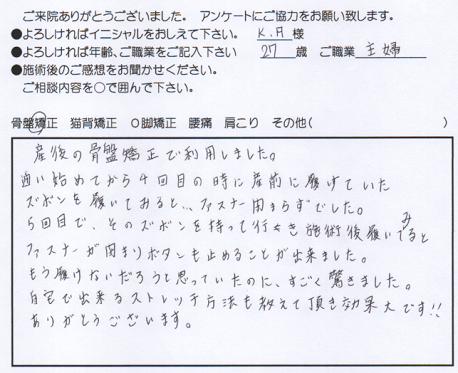 ご来院ありがとうございました。 アンケートにご協力をお願い致します。
●よろしければイニシャルをおしえて下さい。 K.A 様
●よろしければ年齢、ご職業をご記入下さい 27 歳 ご職業 主婦
●施術後のご感想をお聞かせください。
ご相談内容を○で囲んで下さい。
骨盤矯正 猫背矯正 O脚矯正 腰痛 肩こり その他( )
産後の骨盤矯正で利用しました。
通い始めてから4回目の時に産前に履けていた
ズボンを履いてみると、ファスナー閉まらずでした。
5回目で、そのズボンを持って行き施術後履いてみると
ファスナーが閉まりボタンも止めることが出来ました。
もう履けないだろうと思っていたのに、すごく驚きました。
自宅で出来るストレッチ方法も教えて頂き効果大です!!
ありがとうございます。